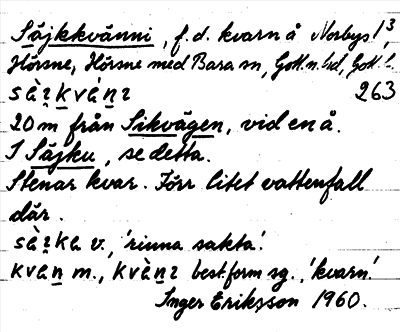 Säjkkvänni, f.d. kvarn å Norbys 1³,
Hörsne, Hörsne med Bara sn, Gotl. n. hd, Gotl. l.
263
20 m från Sikvägen, vid en å.
I Säjku, se detta.
Stenar kvar. Förr litet vattenfall
där.
v., 'rinna sakta'.
m., best. form sg., 'kvarn'.
Inger Eriksson 1960.